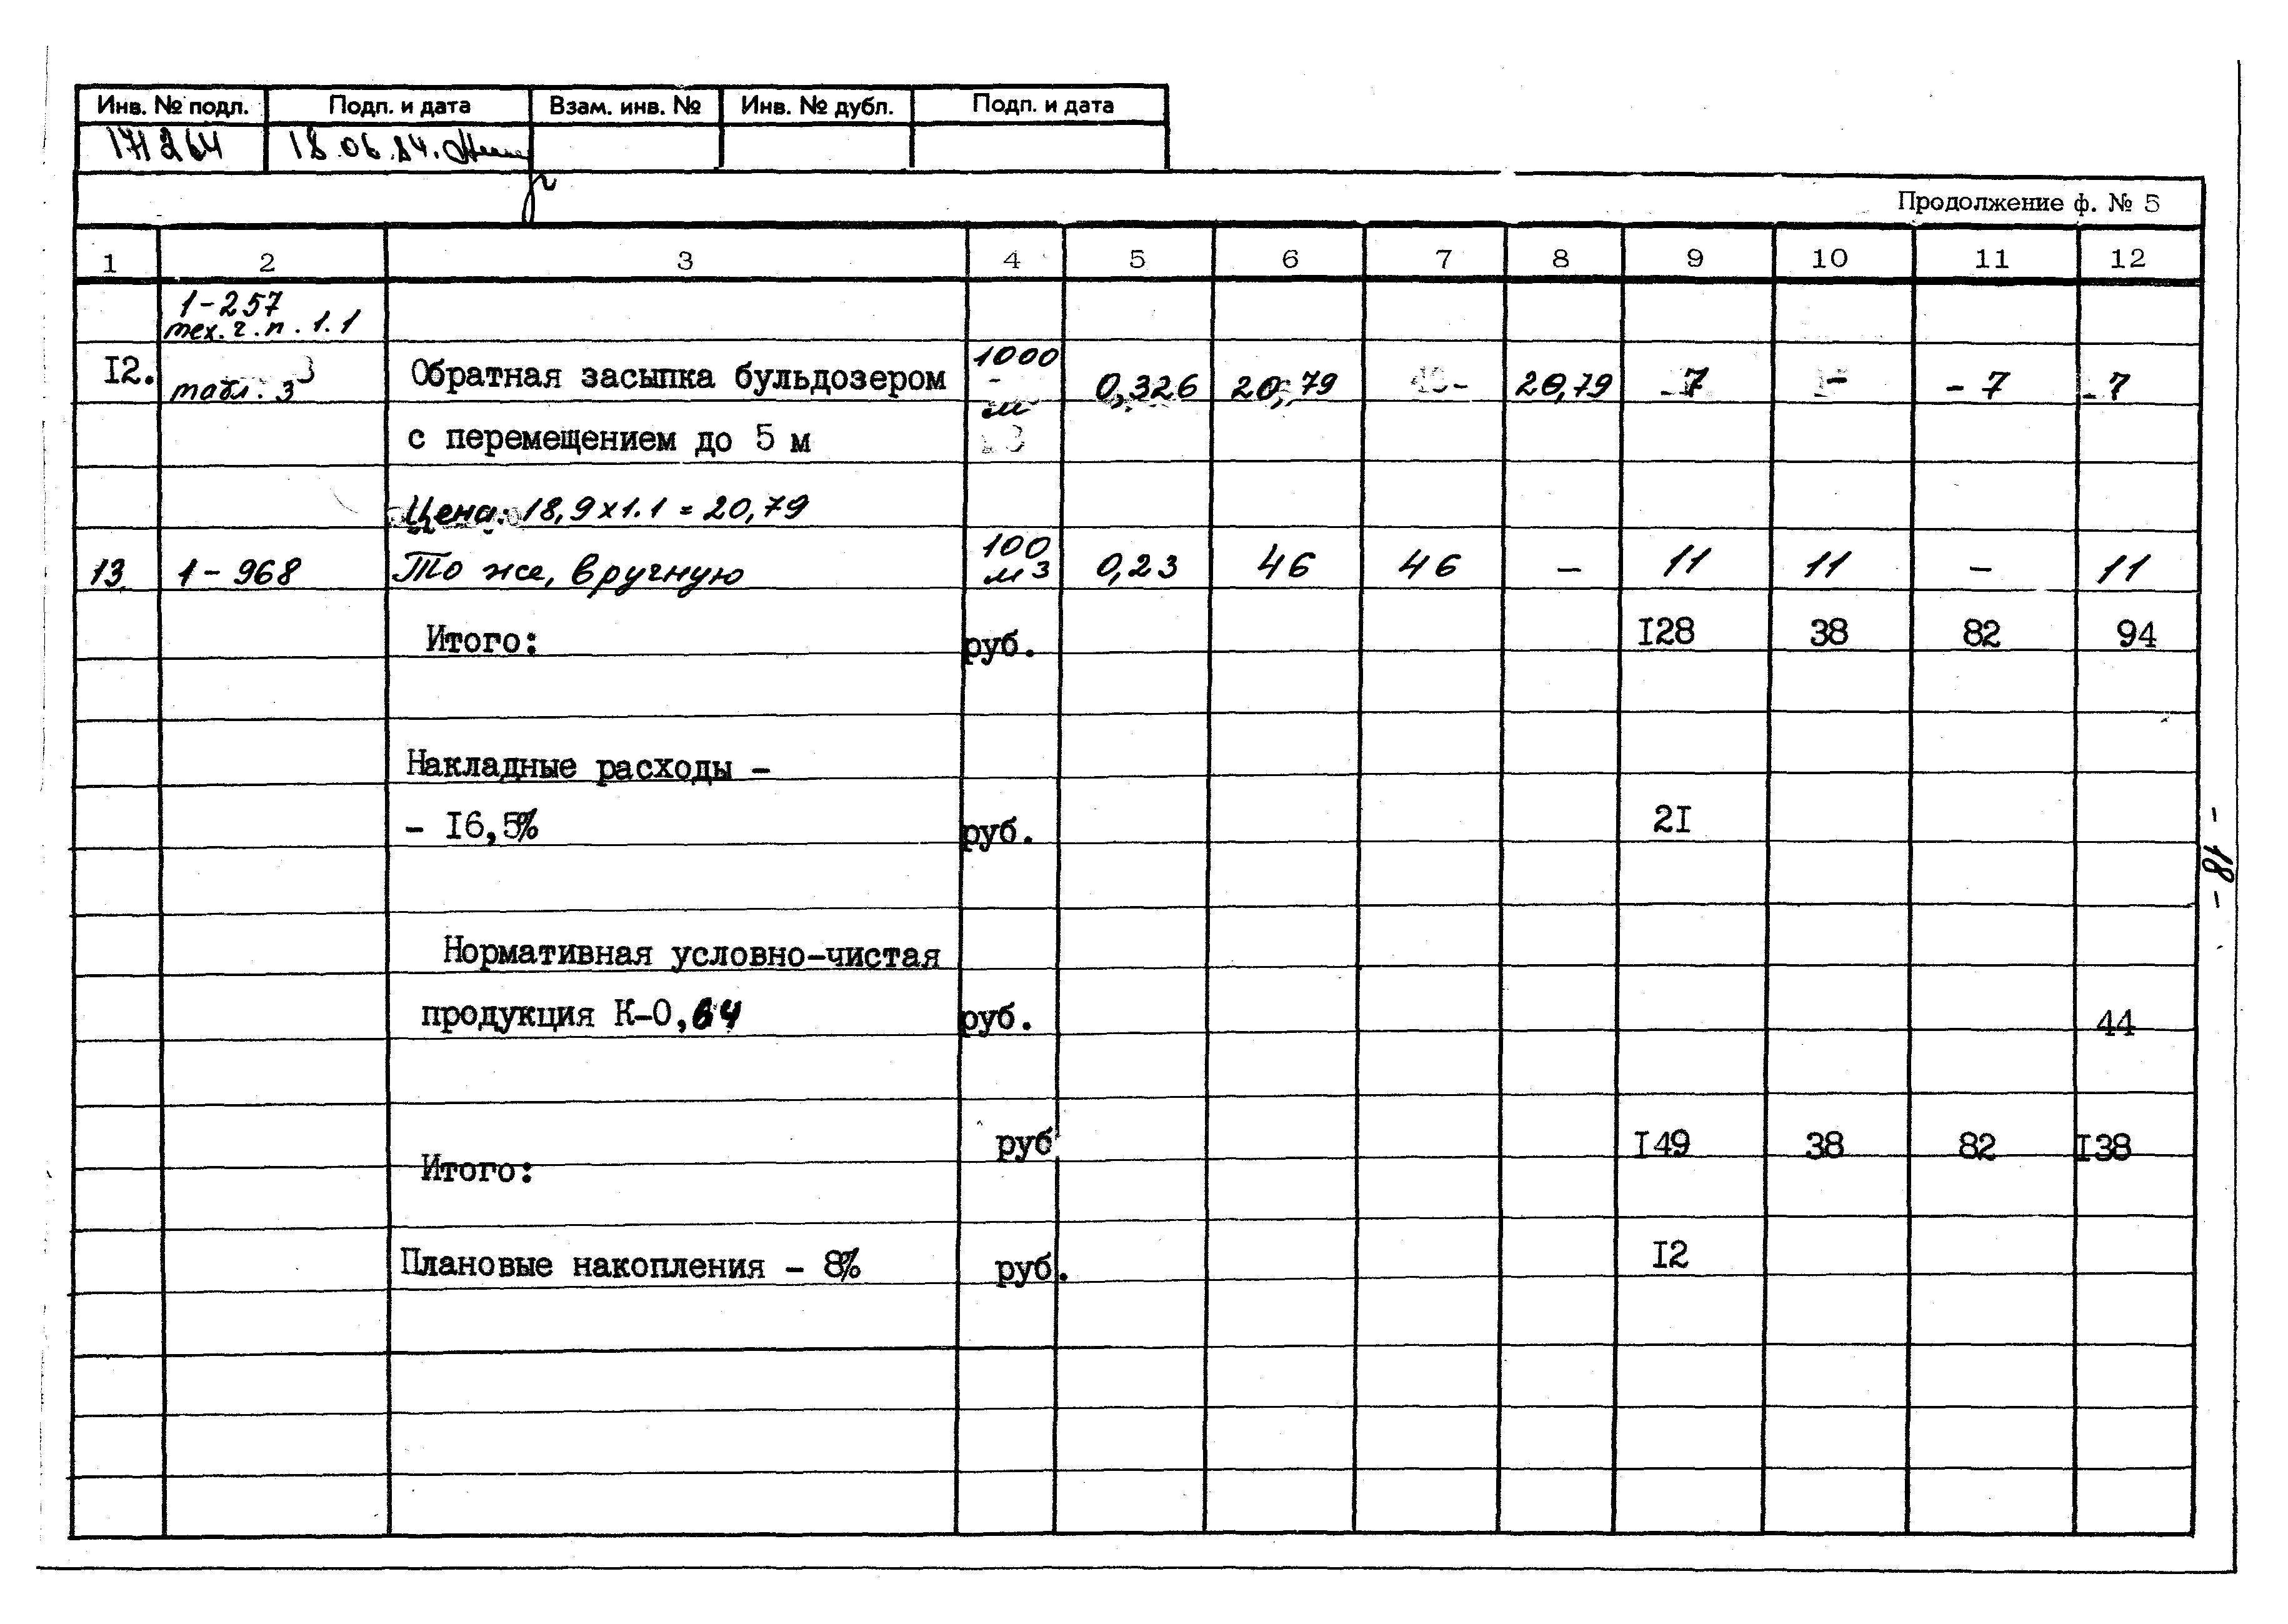 Инв. № подл. Подп. и дата Взам. инв. № Инв. № дубл. Подп. и дата
171264 18.06.84.
Продолжение ф. № 5
1 2 3 4 5 6 7 8 9 10 11 12
1-257
тех.ч.п.1.1
I2. табл. 3 Обратная засыпка бульдозером 1000 м3 0,326 20,79 - 20,79 7 - - 7 7
с перемещением до 5 м
Цена: 18,9х1.1 = 20,79
13 1-968 То же, вручную 100 м3 0,23 46 46 - 11 11 - 11
Итого: руб. I28 38 82 94
Накладные расходы -
- I6,5% руб. 2I
Нормативная условно-чистая
продукция К-0,64 руб. 44
Итого: руб I49 38 82 I38
Плановые накопления - 8% руб. I2
- 18 -